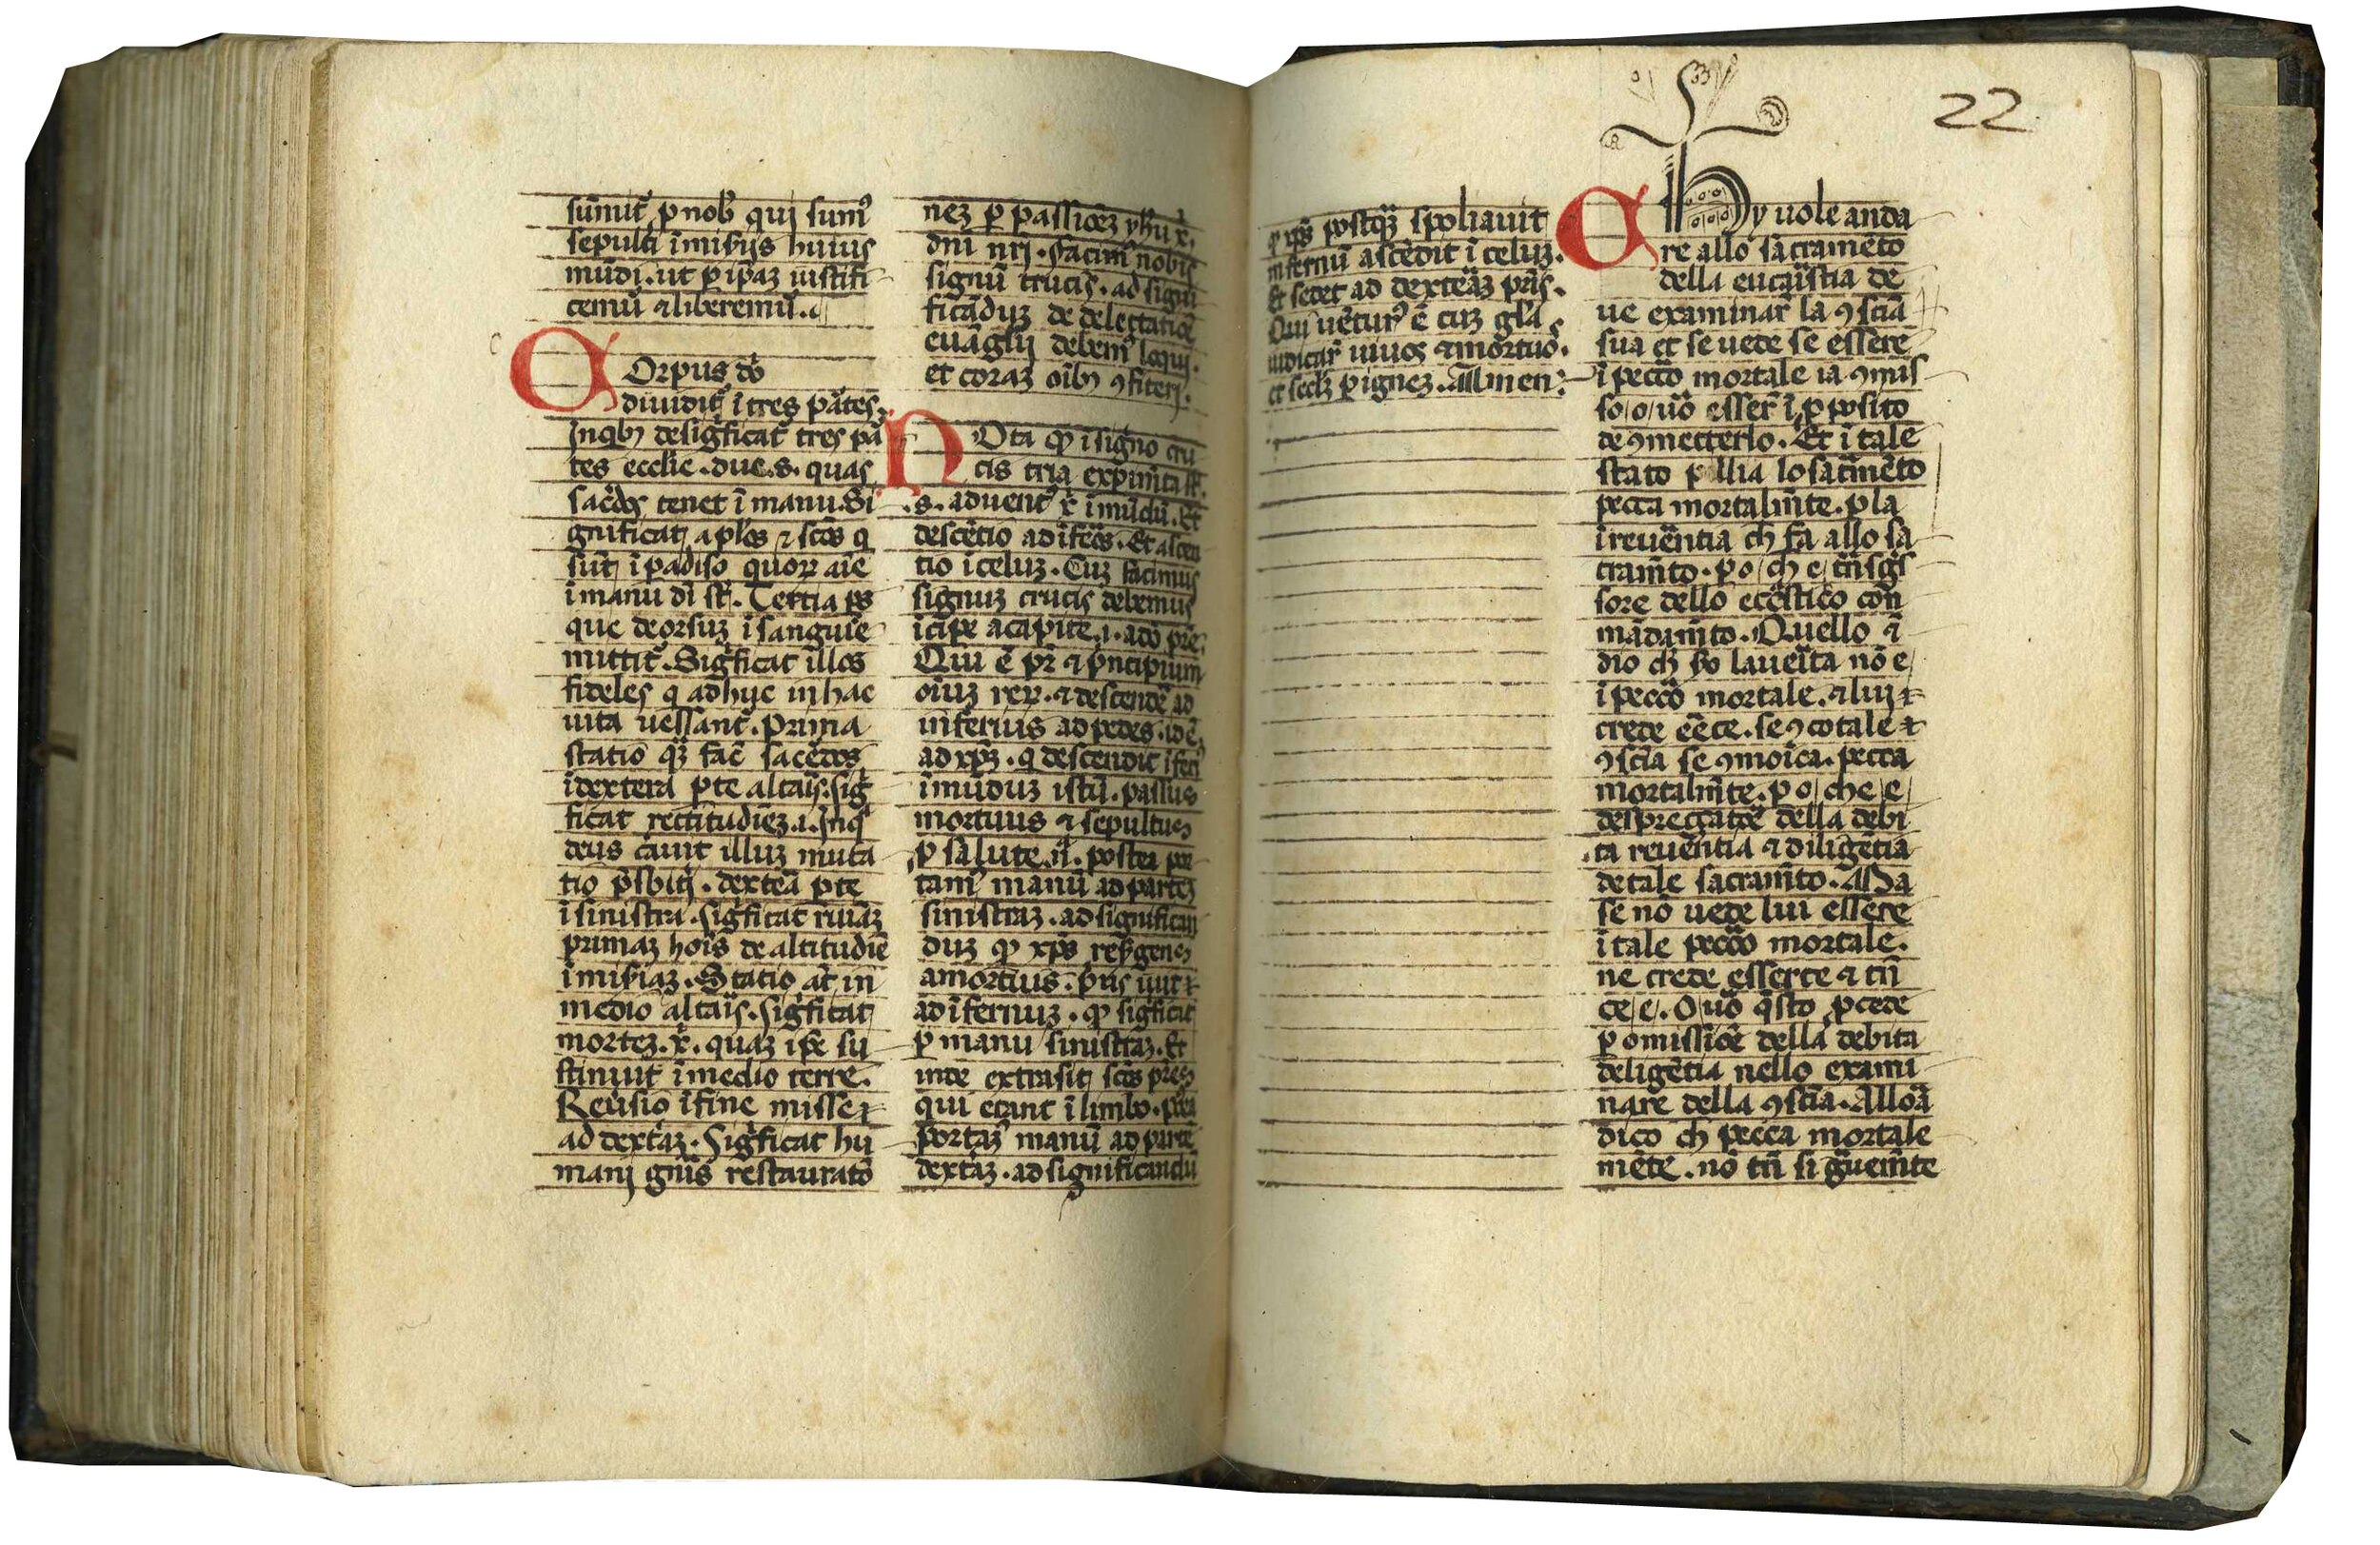 sūmit̄ p nob̄ qui sum⁹
sepulti ī mis̄ijs huius
mūdi. ut p ip̄aȝ iustifi
cemū & liberemū.
c
Corpus dō
diuidit̄ ī tres pātes.
Inqb⁹ desiḡficat̄ tres pā
tes ecclie. due. s. quas
sac̄dos tenet ī manu. Si
gnificat aplōs & scōs q
sūt ī padiso quoꝝ aīe
ī manu dī st̄. Tertia ps
que deorsuȝ ī sanguīe
mittit̄. Siḡficat illos
fideles q adhuc in hac
uita uersant̄. Prima
statio quȝ fac̄ sacēdos
ī dextera pte altaīs. siḡ
ficat rectitudīeȝ .i. Inq
deus cauit illuȝ muta
tio p̄sbitj. dextēa pte
ī sinistra. siḡficat ruināȝ
primaȝ hoīs de altitudīe
ī mis̄iaȝ. Statio aūt in
medio altaīs. siḡficat
morteȝ. x̄. quaȝ ip̄e su
stinuit ī medio terre.
Reūsio ī fine misse
ad dextāȝ. Siḡficat hu
manj gn̄is restauratō
neȝ p passiōeȝ yh̄u x̄.
dn̄i nr̄j. facim⁹ nobis
signū crucis. ad signi
ficāduȝ de delectatiōe
euāglij debem⁹ loqui.
et coraȝ oīb⁹ ꝯfiterj.
Nota ꝙ ī signo cru
cis tria exprimīt
.s. aduent⁹ x̄ ī mūdū. Et
descētio ad īfeōs. Et ascen
tio ī celuȝ. Cuȝ facimus
signuȝ crucis debemus
īcipe a capite .i. a dō pr̄e
Qui ē pr̄ & p̄ncipium
oīuȝ reꝝ. & descendē ad
inferius ad pedes. id ē
ad xp̄ȝ. q descendit
ī mūduȝ istū. passus
mortuus & sepultus
p salute n̄. postea por
tam⁹ manū ad parteȝ
sinistraȝ. ad significan
duȝ ꝙ xp̄s resurgens
a mortuis. pri⁹ iuit
ad īfernuȝ. ꝙ siḡficat
p manu sinistraȝ. Et
inde extrasit scōs pr̄es
qui erant ī limbo.
portaȝ manū ad partē
dextāȝ. ad significandū
ꝙ xp̄s postq̄ȝ spoliauit
infernū ascēdit ī celuȝ.
Et sedet ad dexterāȝ pr̄is.
Qui uētur⁹ ē cuȝ gl̄a
iudicar̄ uiuos & mortuos.
et secl̄ȝ p igneȝ. Amen.
22
Chy uole anda
re allo sācramēto
della eucar̄istia de
ue examinar̄ la ꝯsciā
sua et se uede se essere
ī peccō mortale ia ꝯmis
so/o/uō esser̄ ī pposito
de ꝯmecterlo. Et ī tale
stato pillia lo sacrām̄eto
pecca mortalm̄te. p la
ireuēntia ch̄ fa allo sa
cram̄to. po/ch̄ e/ tn̄sgs
sore dello ecc̄stico con
mādam̄to. Quello ī
dio ch̄ secōdo la ueīta nō e/
ī peccō mortale. & lui
crede eēce. se ꝯ cotale
ꝯsciā se ꝯmoīca. pecca
mortalm̄te. po/che/e/
despreççatōe della debi
ta reuēntia & diligētia
de tale sacram̄to. Ma
se nō uede lui essere
ī tale peccō mortale.
ne crede esserce & tn̄
ce/e/. O/uō q̄sto pcede
p omissiōe della debita
deligētia nello exami
nare della ꝯsciā. Alloā
dico ch̄ pecca mortale
mēte. nō tn̄ si grāuem̄te